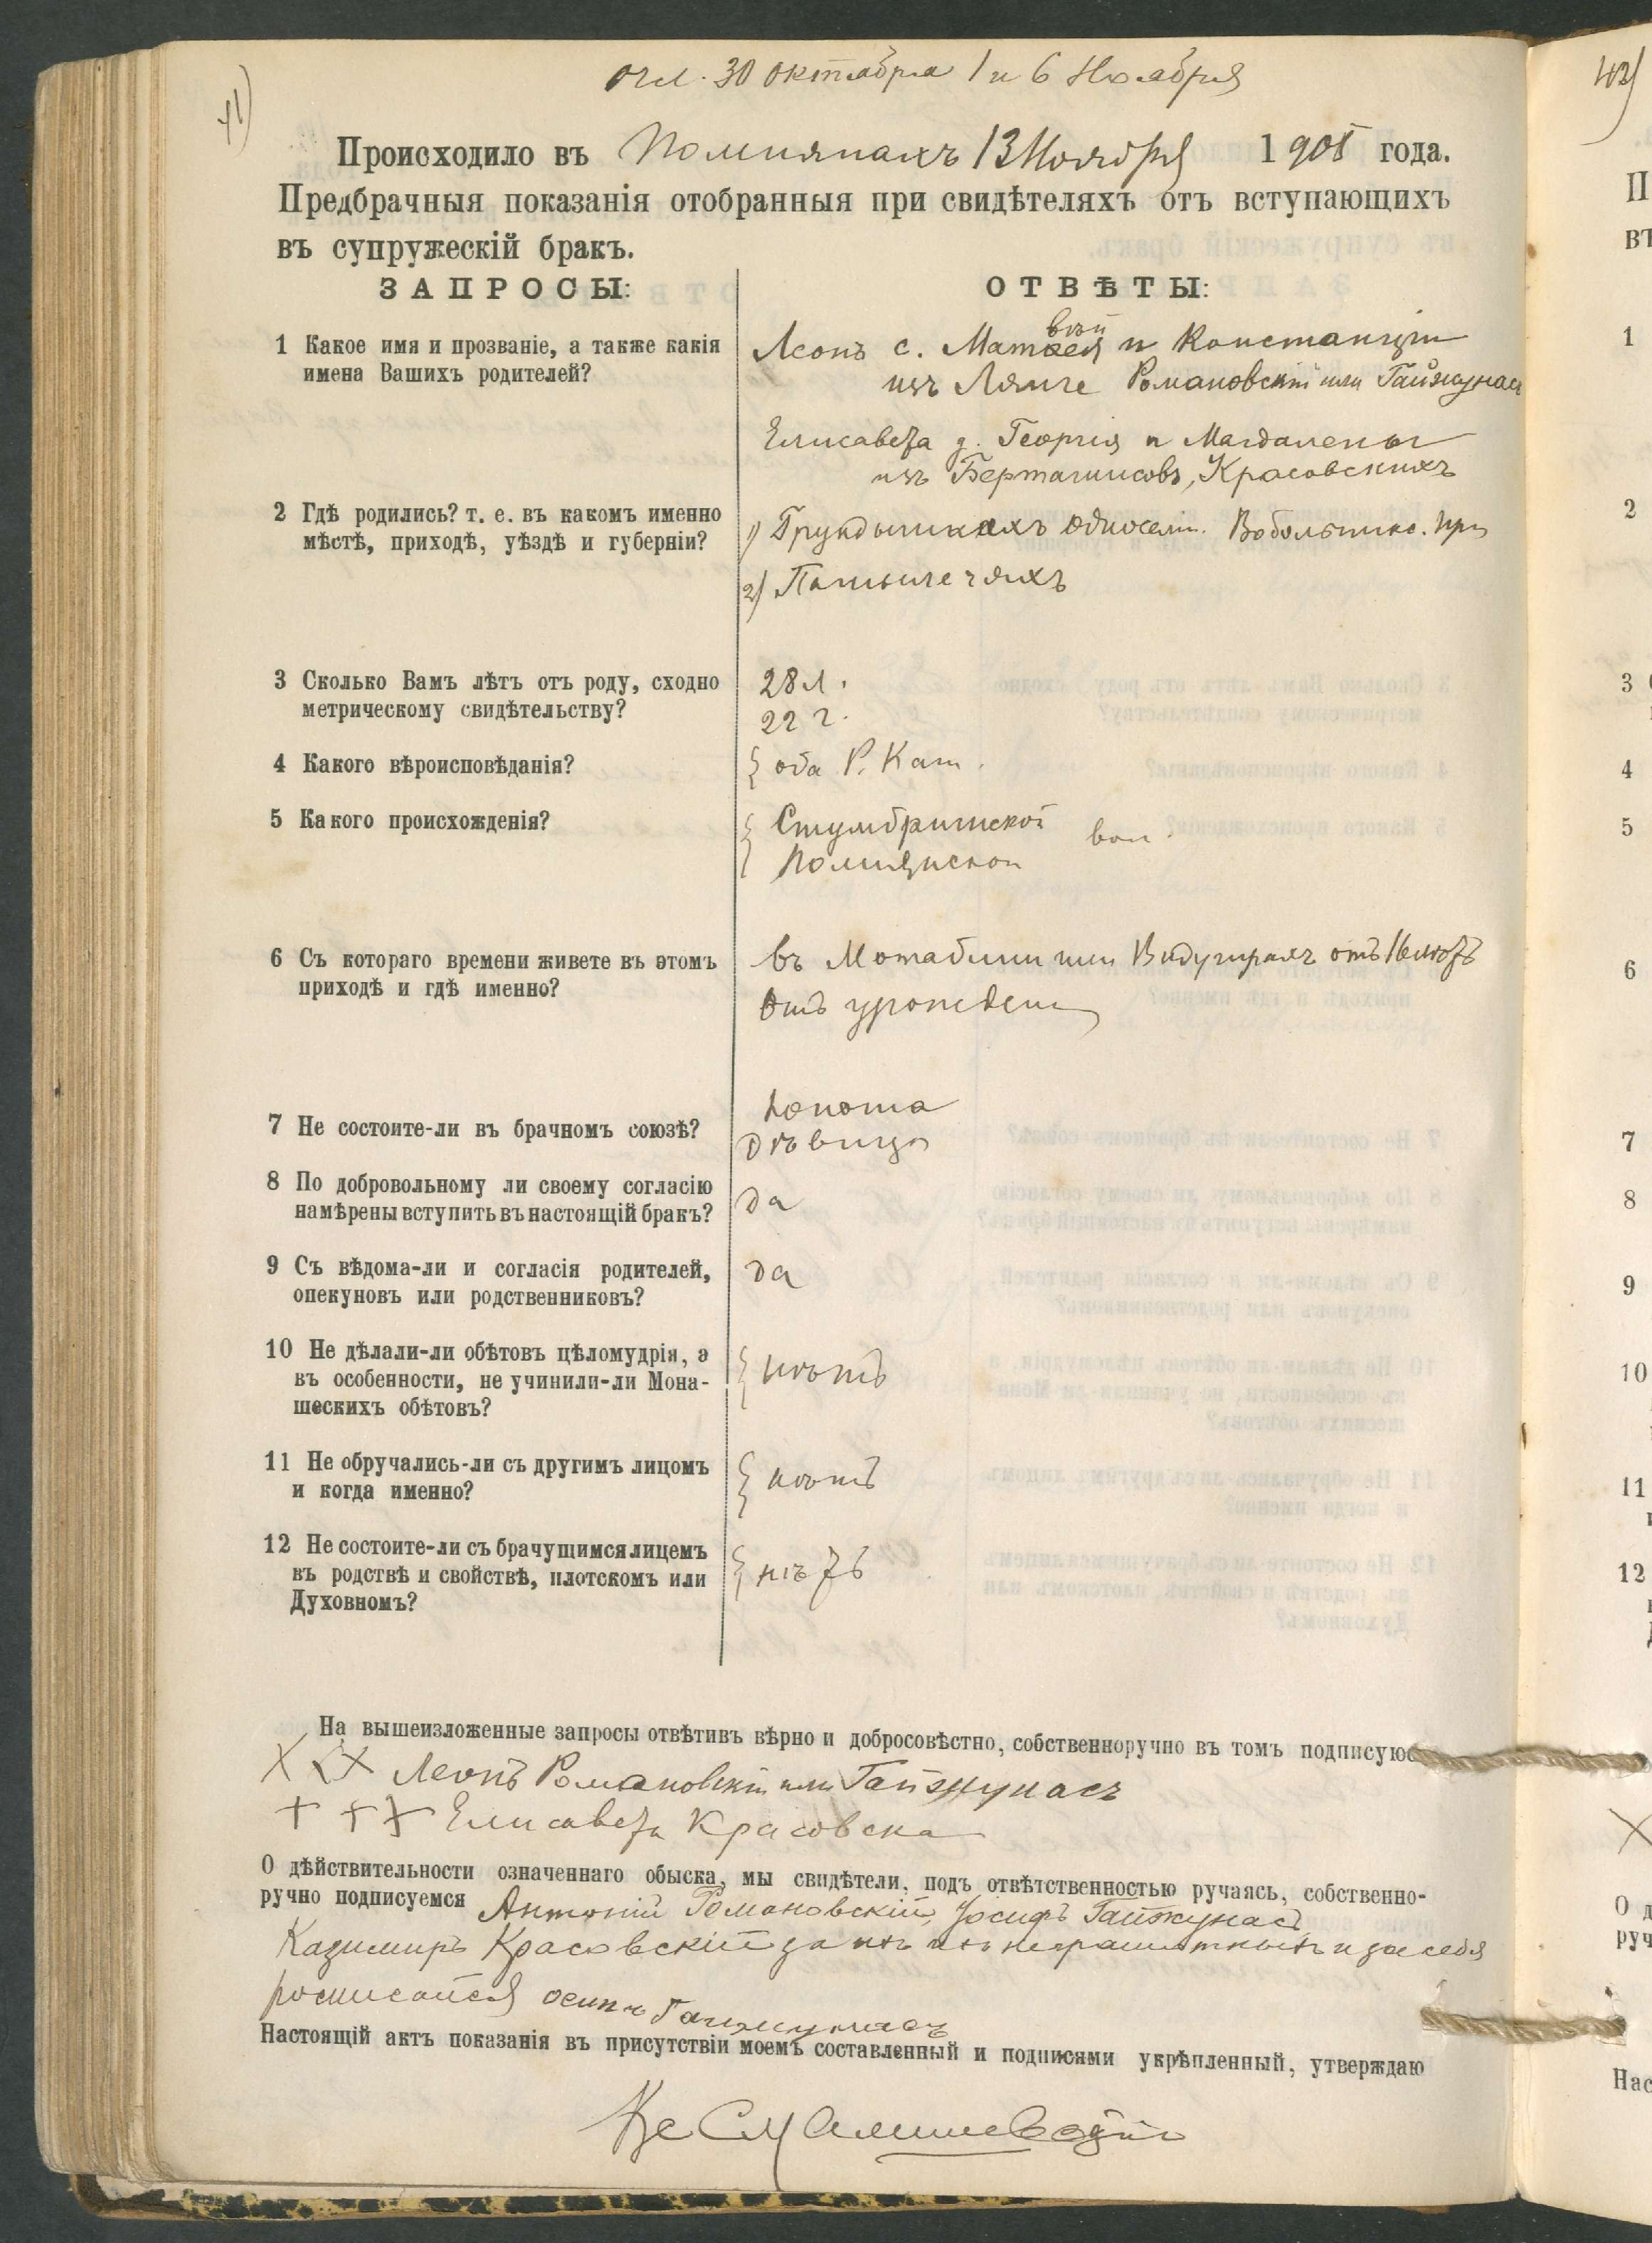 41)
огл. 30 октября 1 и 6 Ноября
Происходило въ Помпянахъ 13 Ноября 1905 года.
Предбрачныя показанія отобранныя при свидѣтеляхъ отъ вступающихъ
въ супружескій бракъ.
ЗАПРОСЫ:
ОТВѢТЫ:
1 Какое имя и прозваніе, а также какія
имена Вашихъ родителей?
Леонъ с. и Констанціи
изъ Романовскій или Гайжунасъ
Елисавета д. Георгія и Магдалены
изъ Красовскихъ
2 Гдѣ родились? т. е. въ какомъ именно
мѣстѣ, приходѣ, уѣздѣ и губерніи?
1)
2)
3 Сколько Вамъ лѣтъ отъ роду, сходно
метрическому свидѣтельству?
28 л.
22 г.
4 Какого вѣроисповѣданія?
оба Р. Кат.
5 Какого происхожденія?
вол.
Помпянской
6 Съ котораго времени живете въ этомъ
приходѣ и гдѣ именно?
въ или отъ
отъ урожден
7 Не состоите-ли въ брачномъ союзѣ?
юноша
дѣвица
8 По добровольному ли своему согласію
намѣрены вступить въ настоящій бракъ?
да
9 Съ вѣдома-ли и согласія родителей,
опекуновъ или родственниковъ?
да
10 Не дѣлали-ли обѣтовъ цѣломудрія, а
въ особенности, не учинили-ли Мона-
шескихъ обѣтовъ?
нѣтъ
11 Не обручались-ли съ другимъ лицомъ
и когда именно?
нѣтъ
12 Не состоите-ли съ брачущимся лицемъ
въ родствѣ и свойствѣ, плотскомъ или
Духовномъ?
нѣтъ
На вышеизложенные запросы отвѣтивъ вѣрно и добросовѣстно, собственноручно въ томъ подписую
ХХХ Леонъ Романовскій или Гайжунасъ
+++ Елисавета Красовска
О дѣйствительности означеннаго обыска, мы свидѣтели, подъ отвѣтственностью ручаясь, собственно-
ручно подписуемся Антоній Романовскій, Іосифъ Гайжунасъ
Казимиръ Красовскій за ихъ неграмотныхъ и за себя
росписался осипъ Гайжунасъ
Настоящій актъ показанія въ присутствіи моемъ составленный и подписями укрѣпленный, утверждаю